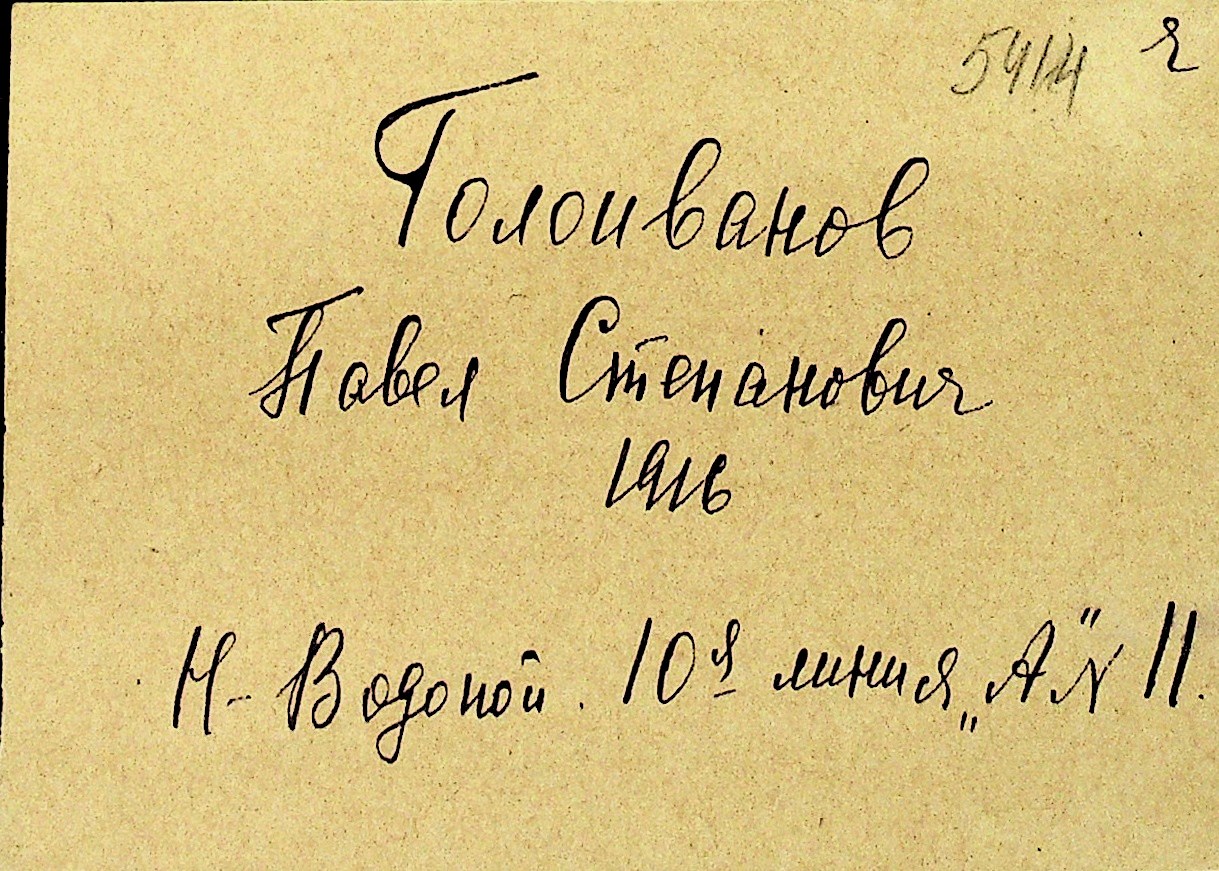 5414 г
Голоиванов
Павел Степанович
1916
Н-Водопой. 10я линия „А" N 11.